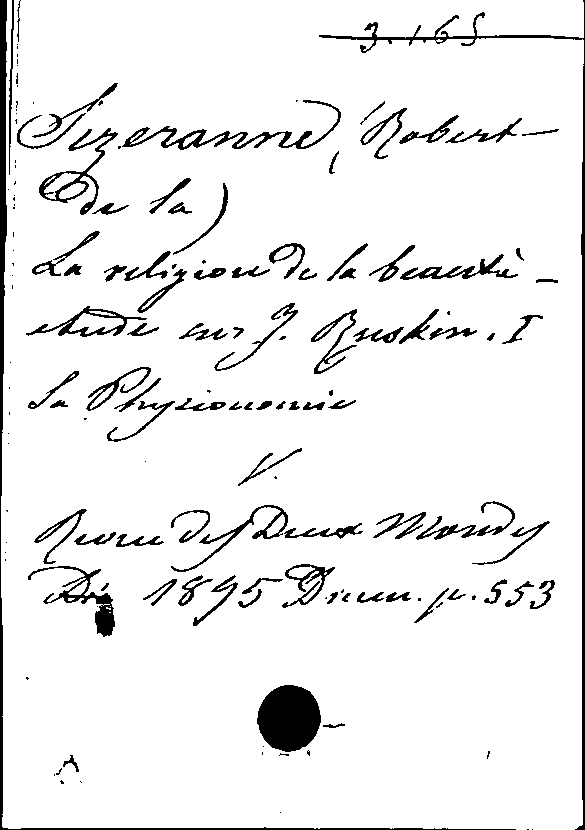 3.1.65
Sizeranne, (Robert
de la)
La religion de la beauté -
etude sur J. Ruskin. I
Sa Physionomie
V.
Revue des Deux Mondes
1895 Dicem. p. 553